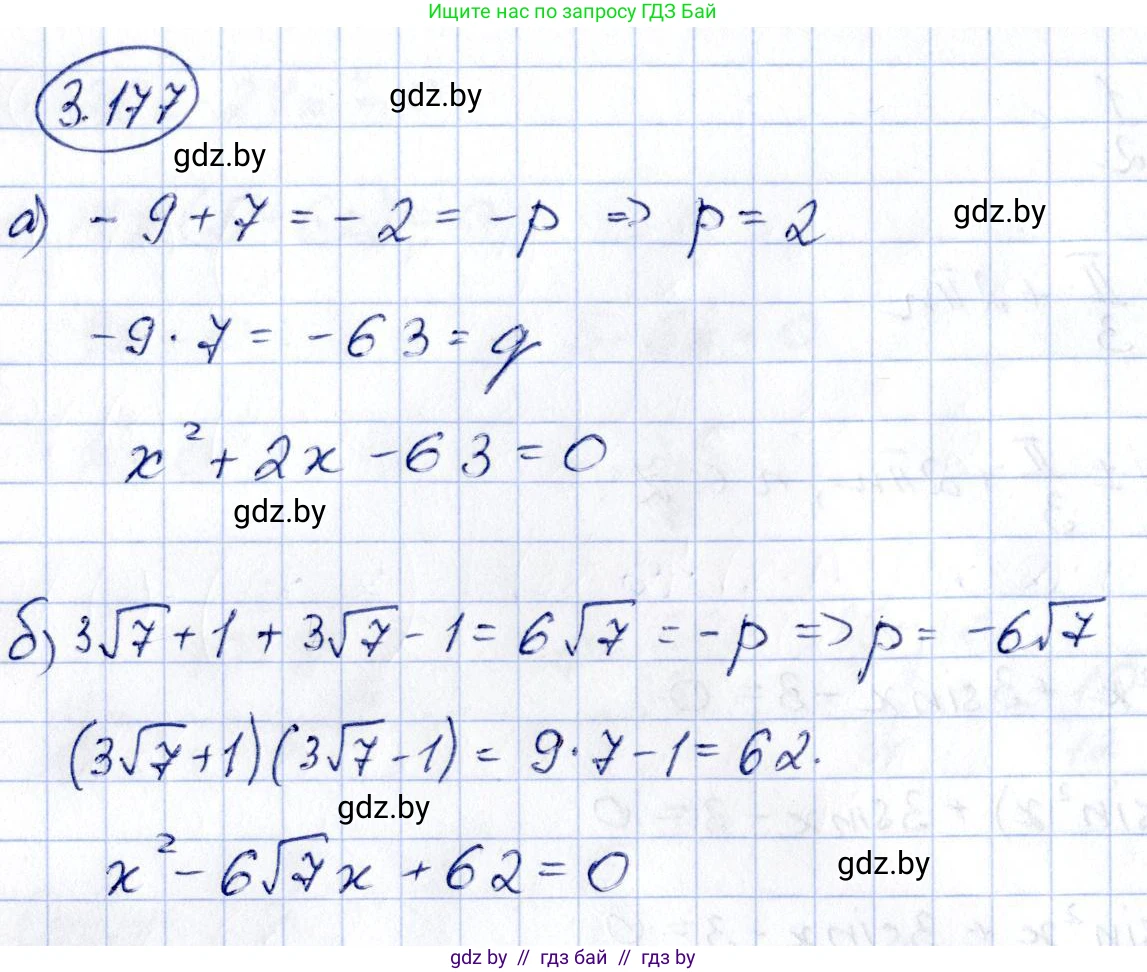 Ищите нас по запросу ГДЗ Бай
3.177
gdz.by
gdz.by
а) - 9 + 7 = - 2 = - p => p = 2
gdz.by
-9 · 7 = - 63 = q
x² + 2x - 63 = 0
gdz.by
б) 3√7 + 1 + 3√7 - 1 = 6√7 = - p => p = -6√7
(3√7 + 1)(3√7 - 1) = 9 · 7 - 1 = 62.
gdz.by
x² - 6√7x + 62 = 0
gdz.by
gdz by // гдз бай // gdz by